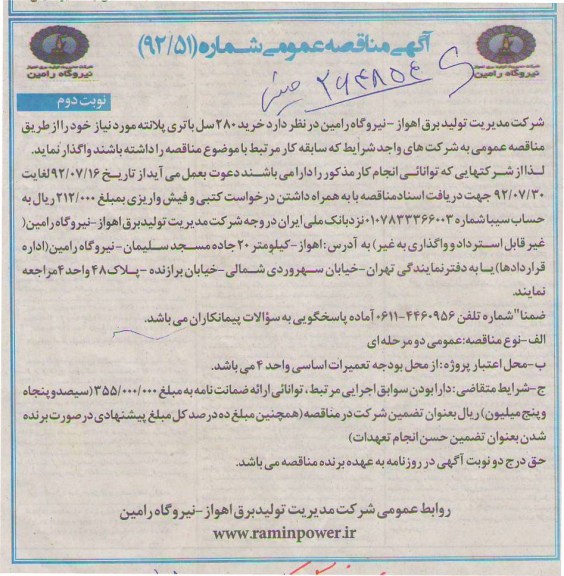 آگهی مناقصه عمومی شماره (۹۲/۵۱)
شرکت مدیریت تولید برق اهواز
نیروگاه رامین
شرکت مدیریت تولید برق اهواز
نیروگاه رامین
۲۶۴۸۵۴
نوبت دوم
شرکت مدیریت تولید برق اهواز -نیروگاه رامین در نظر دارد خرید ۲۸۰ سل باتری پلانته مورد نیاز خود را از طریق
مناقصه عمومی به شرکت های واجد شرایط که سابقه کار مرتبط با موضوع مناقصه را داشته باشند واگذار نماید.
لذا از شرکتهایی که توانائی انجام کار مذکور را دارا می باشند دعوت بعمل می آید از تاریخ ۹۲/۰۷/۱۶ لغایت
۹۲/۰۷/۳۰ جهت دریافت اسناد مناقصه با به همراه داشتن درخواست کتبی و فیش واریزی بمبلغ ۲۱۲/۰۰۰ ریال به
حساب سیبا شماره ۰۱۰۷۸۳۳۳۶۶۰۰۳ نزد بانک ملی ایران در وجه شرکت مدیریت تولید برق اهواز-نیروگاه رامین(
غیر قابل استرداد و واگذاری به غیر) به آدرس: اهواز-کیلومتر ۲۰ جاده مسجد سلیمان-نیروگاه رامین(اداره
قراردادها) یا به دفتر نمایندگی تهران-خیابان سهروردی شمالی-خیابان برازنده -پلاک ۴۸ واحد ۴ مراجعه
نمایند.
ضمنا" شماره تلفن ۴۴۶۰۹۵۶-۰۶۱۱ آماده پاسخگویی به سؤالات پیمانکاران می باشد.
الف-نوع مناقصه:عمومی دو مرحله ای
ب-محل اعتبار پروژه: از محل بودجه تعمیرات اساسی واحد ۴ می باشد.
ج-شرایط متقاضی: دارا بودن سوابق اجرایی مرتبط، توانائی ارائه ضمانت نامه به مبلغ ۳۵۵/۰۰۰/۰۰۰ (سیصد و پنجاه
و پنج میلیون) ریال بعنوان تضمین شرکت در مناقصه (همچنین مبلغ ده درصد کل مبلغ پیشنهادی در صورت برنده
شدن بعنوان تضمین حسن انجام تعهدات)
حق درج دو نوبت آگهی در روزنامه به عهده برنده مناقصه می باشد.
روابط عمومی شرکت مدیریت تولید برق اهواز -نیروگاه رامین
www.raminpower.ir